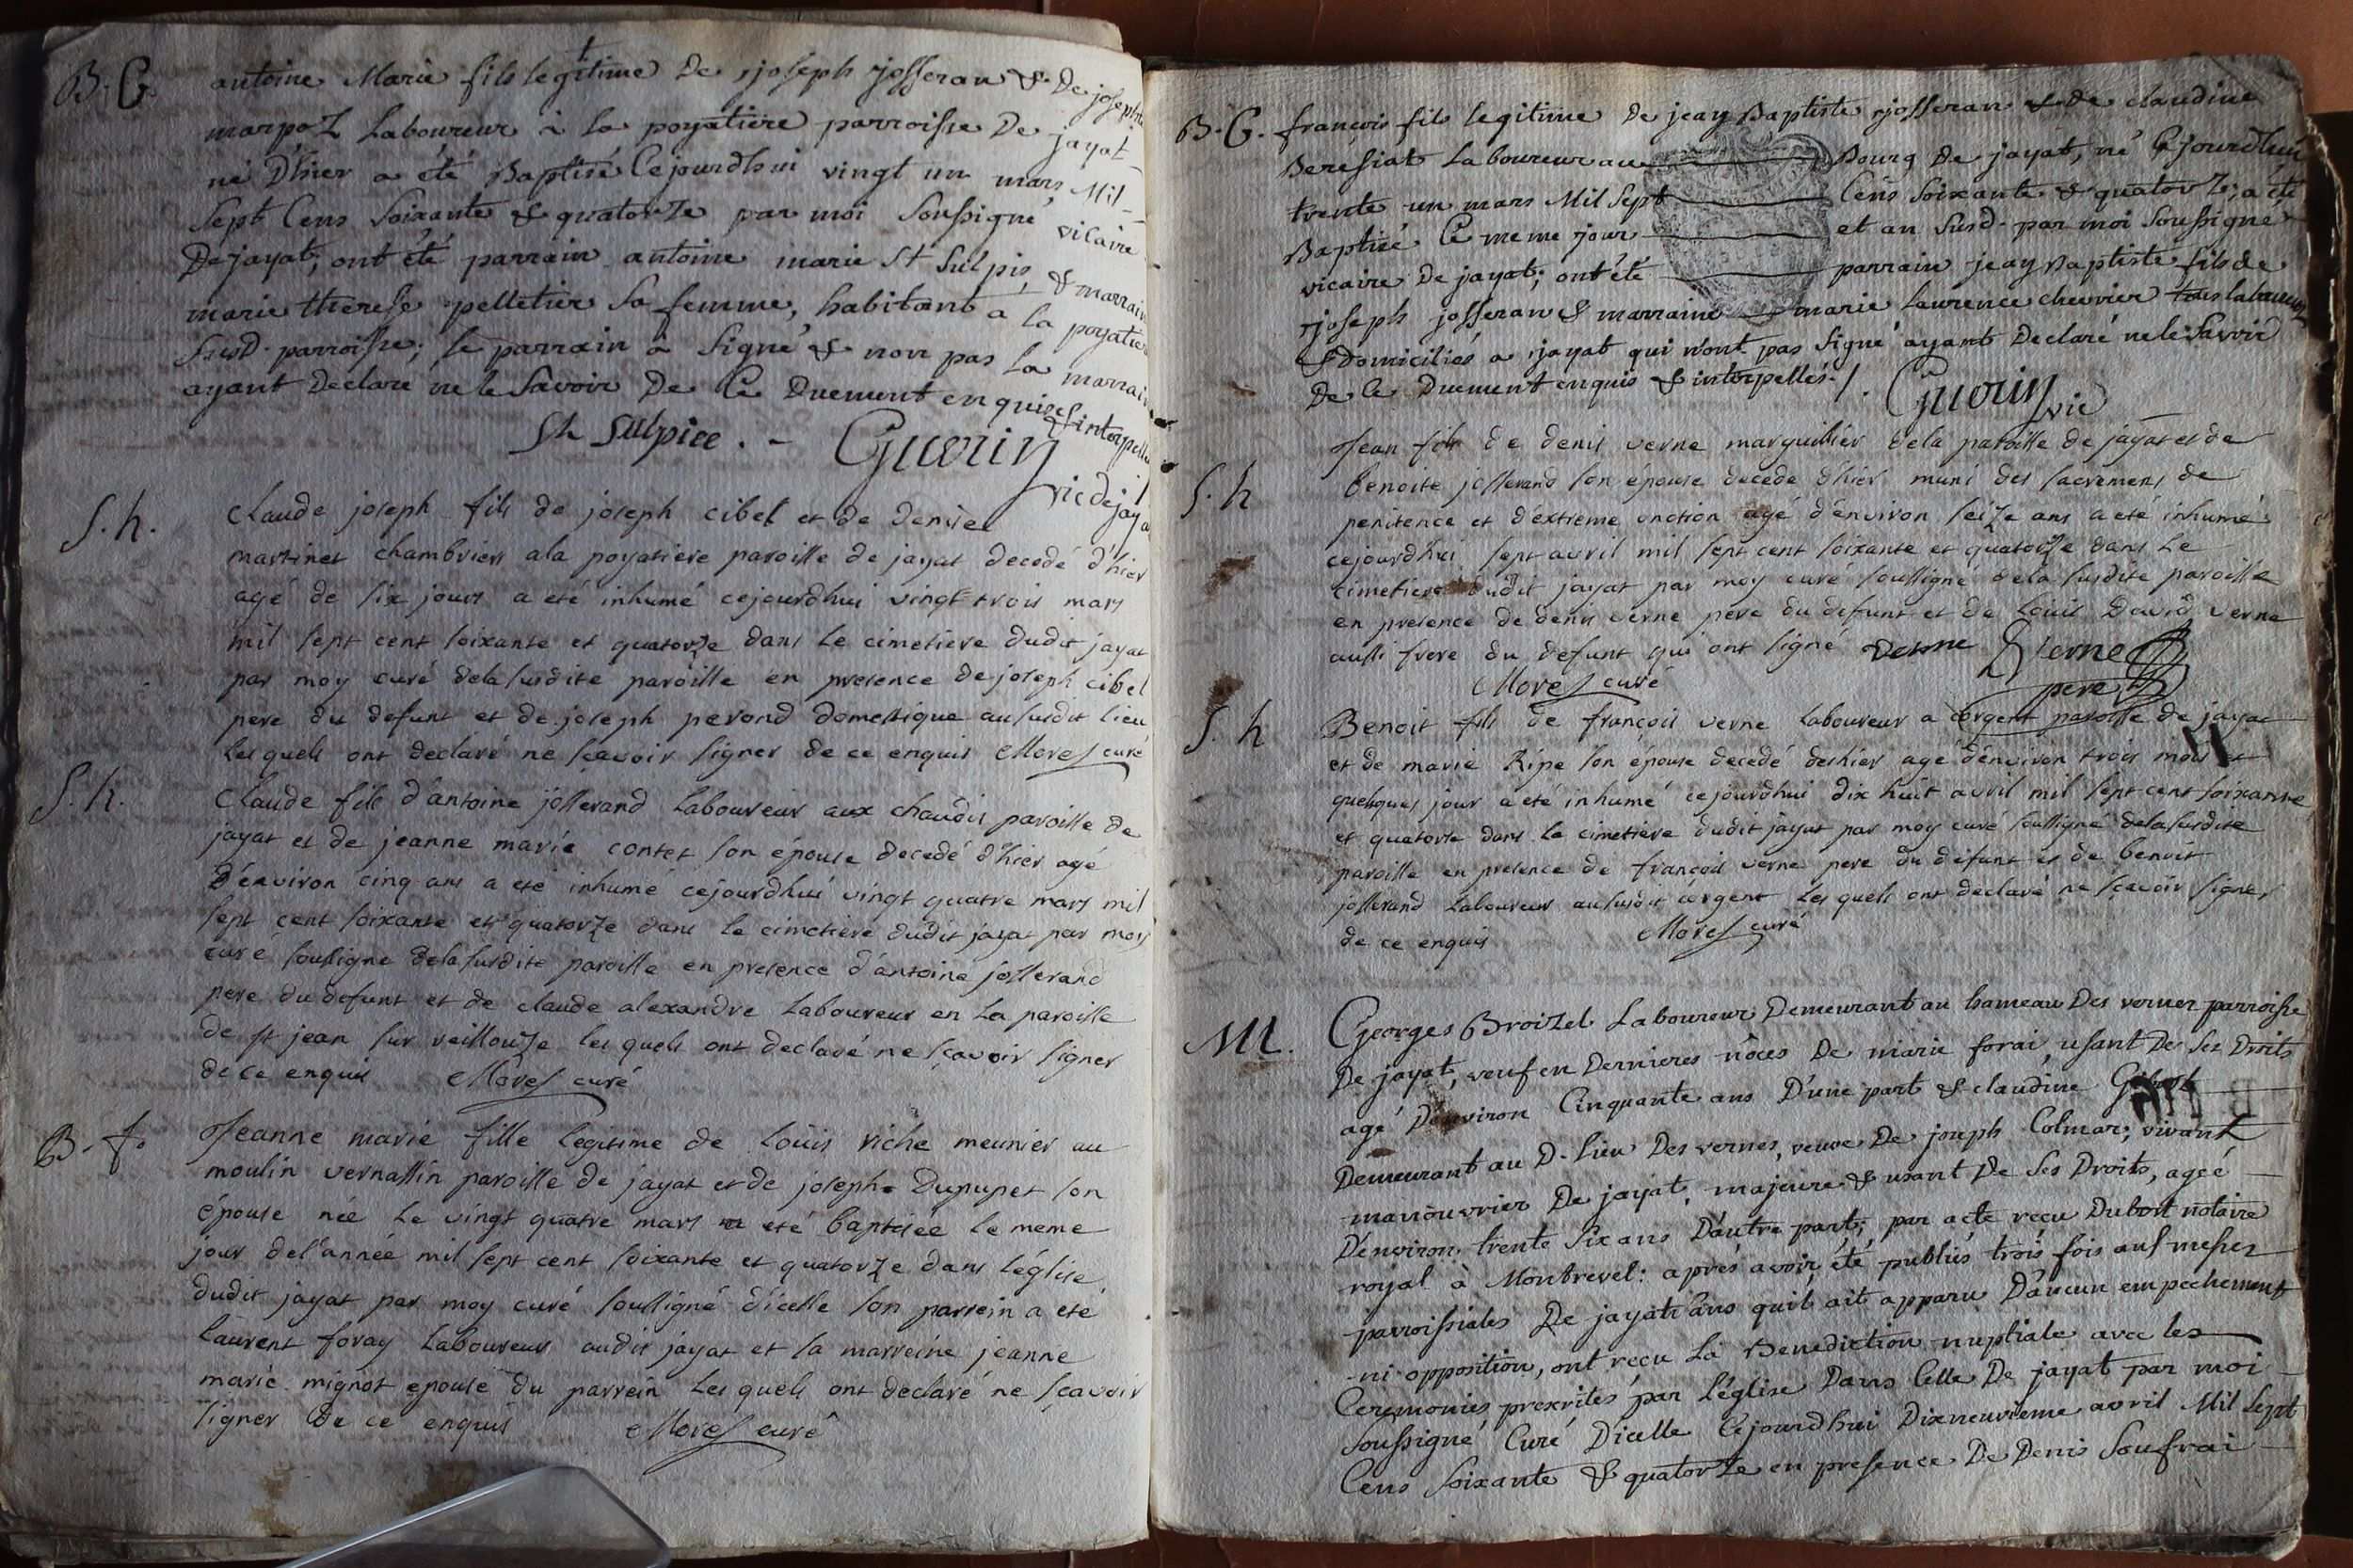 B. G. antoine Marie fils legitime De joseph josseran & De josephte
marpoz Laboureur à La poyatiere parroisse De jayat
né D'hier a été Baptisé Cejourdhui vingt un mars Mil
Sept Cens Soixante & quatorze par moi Soussigné vicaire
De jayat; ont été parrain antoine marie St Sulpis, & marraine
marie therese pelletier Sa femme, habitant a la poyatiere
Susd. parroisse; le parrain à Signé & non pas La marraine
ayant Declaré ne le Savoir De Ce Duement enquise & interpellée
St Sulpice . - Guerin
vic de jayat
S. h. Claude joseph fils de joseph cibel et de denise
martinet chambrier a la poyatiere paroisse de jayat decedé d'hier
agé de six jours a eté inhumé cejourdhui vingt trois mars
mil sept cent soixante et quatorze dans le cimetiere dudit jayat
par moy curé de la susdite paroisse en presence de joseph cibel
pere du defunt et de joseph perond domestique au susdit lieu
les quels ont declaré ne sçavoir signer de ce enquis Morel curé
S. h. Claude fils d'antoine josserand Laboureur aux chaudis paroisse de
jayat et de jeanne marie contet son épouse decedé d'hier agé
d'énviron cinq ans a eté inhumé cejourdhui vingt quatre mars mil
sept cent soixante et quatorze dans le cimetiere dudit jayat par moy
curé soussigné de la susdite paroisse en presence d'antoine josserand
pere du defunt et de claude alexandre Laboureur en la paroisse
de st jean sur veillouze les quels ont declaré ne sçavoir signer
de ce enquis Morel curé
B. f. Jeanne marie fille legitime de Loüis riche meunier au
moulin vernassin paroisse de jayat et de josephe Dupupet son
épouse née le vingt quatre mars a eté baptisée le meme
jour de l'année mil sept cent soixante et quatorze dans l'église
dudit jayat par moy curé soussigné d'icelle son parrein a eté
laurent foray Laboureur audit jayat et la marreine jeanne
marie mignot epouse du parrein les quels ont declaré ne sçavoir
signer de ce enquis Morel curé
B. G. francois fils legitime De jean Baptiste josseran & de claudine
Beresiat Laboureur au Bourg De jayat, né Cejourdhui
trente un mars Mil Sept Cens Soixante & quatorze; a été
Baptisé Ce meme jour et an Susd. par moi Soussigné
vicaire De jayat; ont été parrain jean Baptiste fils de
joseph josseran & marraine marie Laurence chevrier tous laboureurs
& Domiciliés a jayat qui n'ont pas Signé ayant Declaré ne le Savoir
De le Duement enquis & interpellés ./. Guerin vic
S. h Jean fils de denis verne marguillier de la paroisse de jayat et de
benoite josserand son épouse decedé d'hier muni des sacremens de
penitence et d'extreme onction agé d'énviron seize ans a eté inhumé
cejourdhui sept avril mil sept cent soixante et quatorze dans le
cimetiere dudit jayat par moy curé soussigné de la susdite paroisse
en presence de denis verne pere du defunt et de loüis david verne
aussi frere du defunt qui ont signé verne D verne
Morel curé pere
S. h Benoit fils de françois verne Laboureur a corgent paroisse de jayat
et de marie Ripe son épouse decedé deshier agé d'énviron trois mois et
quelques jour a eté inhumé cejourdhui dix huit avril mil sept cent soixante
et quatorze dans le cimetiere dudit jayat par moy curé soussigné de la susdite
paroisse en presence de françois verne pere du défunt et de benoit
josserand Laboureur au susdit corgent les quels ont declaré ne sçavoir signer
de ce enquis Morel curé
M. Georges Broizel Laboureur Demeurant au hameau Des vernes parroisse
De jayat, veuf en Dernieres nôces De marie forai, usant De Ses Droits
agé D'environ Cinquante ans D'une part & claudine
Demeurant au D. lieu Des vernes, veuve De joseph Colmar; vivant
manouvrier De jayat, majeure & usant De Ses Droits, ageé
D'environ trente Six ans D'autre part; par acte reçu Dubort notaire
royal à Montrevel: aprés avoir été publiés trois fois aus messes
parroissiales De jayat sans quil ait apparu D'aucun empechement
ni opposition, ont reçu La Benediction nuptiale avec les
Ceremonies prexrites par l'église Dans Celle De jayat par moi
Soussigné Curé D'icelle Cejourdhui Dixneuvieme avril Mil Sept
Cens Soixante & quatorze en presence De Denis Soufrai